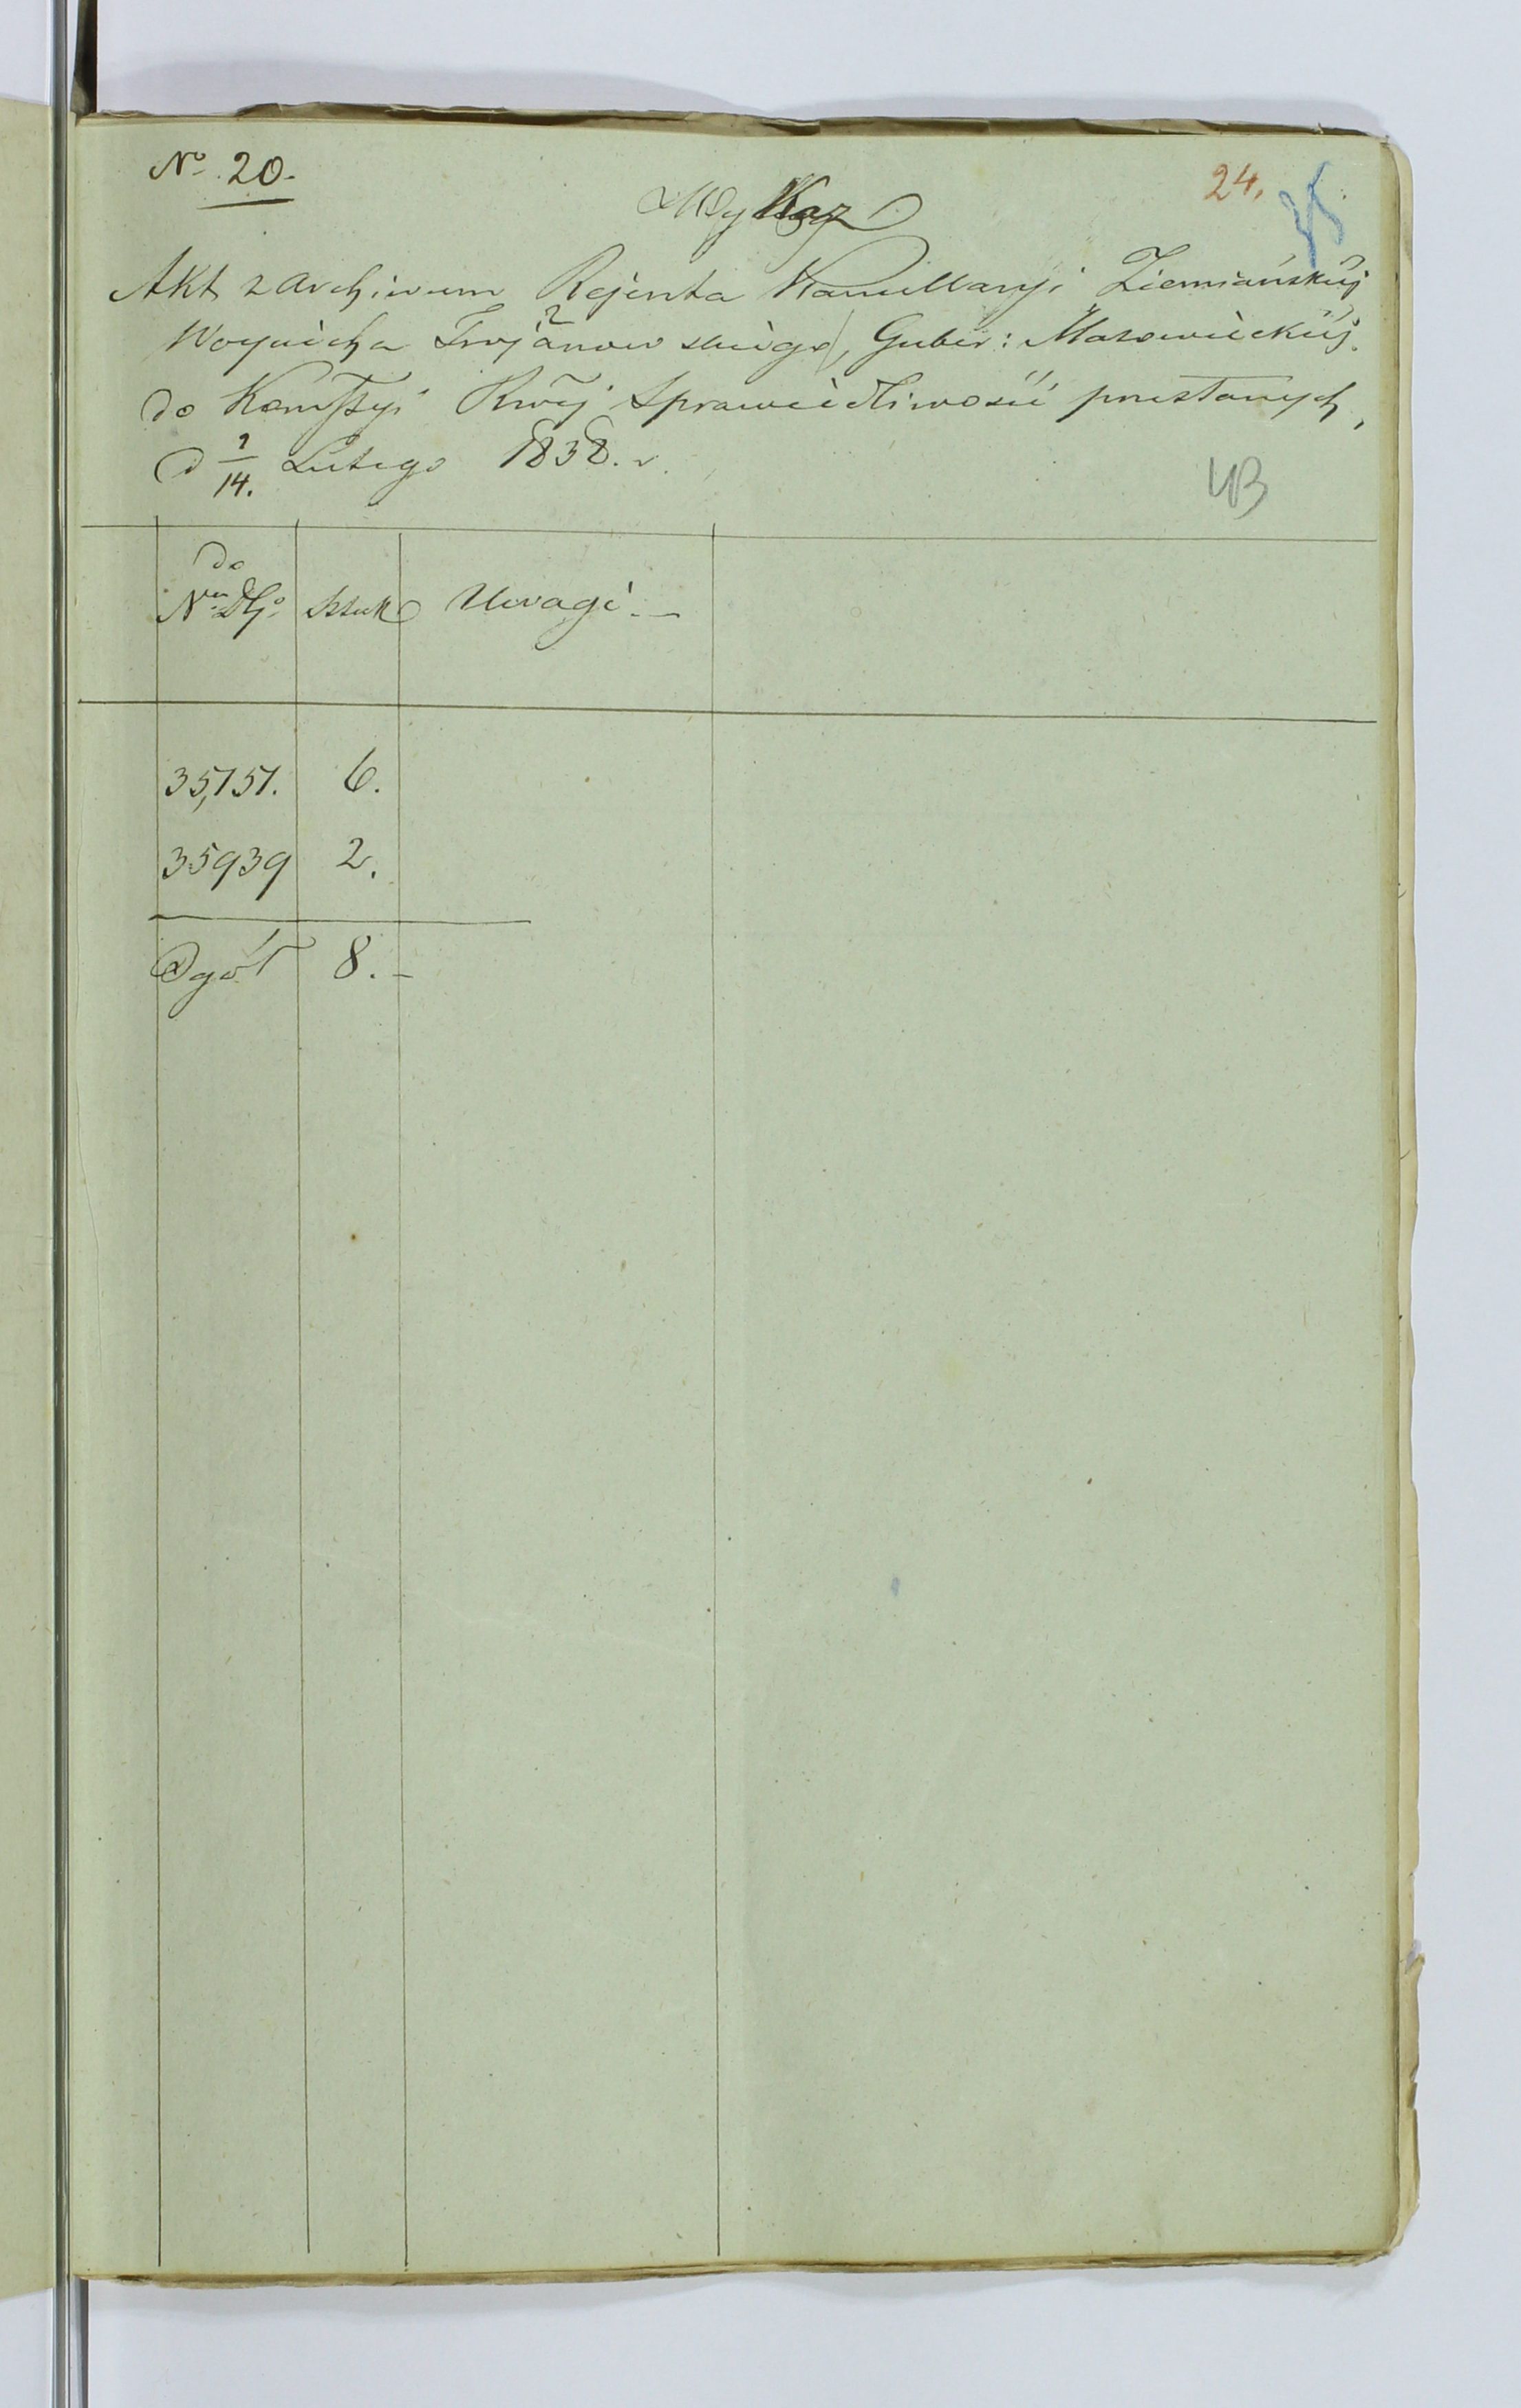 No 20.
24.
Wykaz
Akt z Archiwum Rejenta Kancellaryi Ziemiańskiej
Woyciecha Trojanowskiego, Guber: Mazowieckiej.
do Kommissyi Rwej Sprawiedliwości przesłanych,
d 2/14. Lutego 1838. r.
43
do Nru Dgo | Sztuk | Uwagi. —
35,151. | 6.
35939 | 2.
Ogół | 8. –